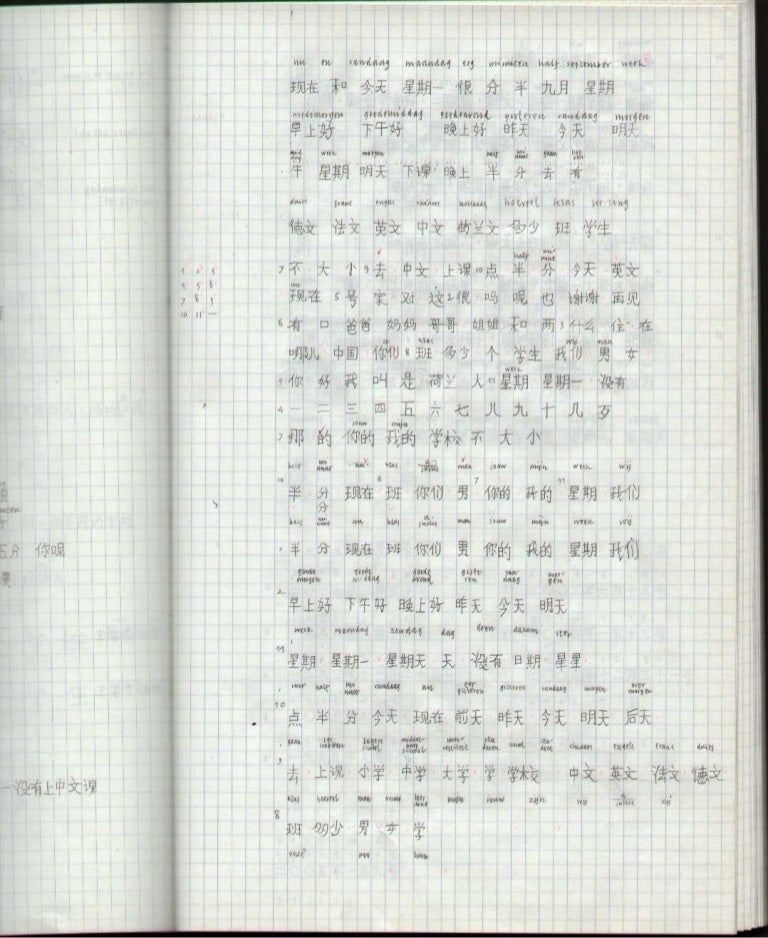 五分 你呢
一没有上中文课
nu en vandaag maandag erg minuten half september week
现在 和 今天 星期一 很 分 半 九月 星期
goedemorgen goedemiddag goedeavond gisteren vandaag morgen
早上好 下午好 晚上好 昨天 今天 明天
week morgen half gaan
午 星期 明天 下课 晚上 半 分 去 有
duits frans engels chinees hoeveel klas leerling
德文 法文 英文 中文 荷兰文 多少 班 学生
half minuut
1 2 3
7 不 大 小 9 去 中文 上课 10 点 半 分 今天 英文
4 5 6
nu
7 8 9
现在 5 号 家 对 这 2 很 吗 呢 也 谢谢 再见
10 11 一
6 有 口 爸爸 妈妈 哥哥 姐姐 和 两 3 什么 住 在
klas wij man
哪儿 中国 你们 8 班 多少 个 学生 我们 男 女
week
你 好 我 叫 是 荷兰 人 11 星期 星期一 没有
4 一 二 三 四 五 六 七 八 九 十 几 岁
jouw mijn
7 那 的 你的 我的 学校 不 大 小
half nu klas jullie man jouw mijn week wij
10 半 分 现在 8 班 你们 男 7 你的 我的 11 星期 我们
分
half nu klas jullie man jouw mijn week wij
半 分 现在 班 你们 男 你的 我的 星期 我们
goede morgen goede middag goede avond gisteren vandaag morgen
2 早上好 下午好 晚上好 昨天 今天 明天
week maandag zondag dag geen datum ster
11 星期 星期一 星期天 天 没有 日期 星星
uur half minuut vandaag nu eergisteren gisteren vandaag morgen overmorgen
10 点 半 分 今天 现在 前天 昨天 今天 明天 后天
gaan les hebben lagere school middelbare school universiteit studeren school chinees engels frans duits
9 去 上课 小学 中学 大学 学 学校 中文 英文 法文 德文
klas hoeveel man vrouw mijn jouw zijn wij jullie zij
8 班 多少 男 女 学